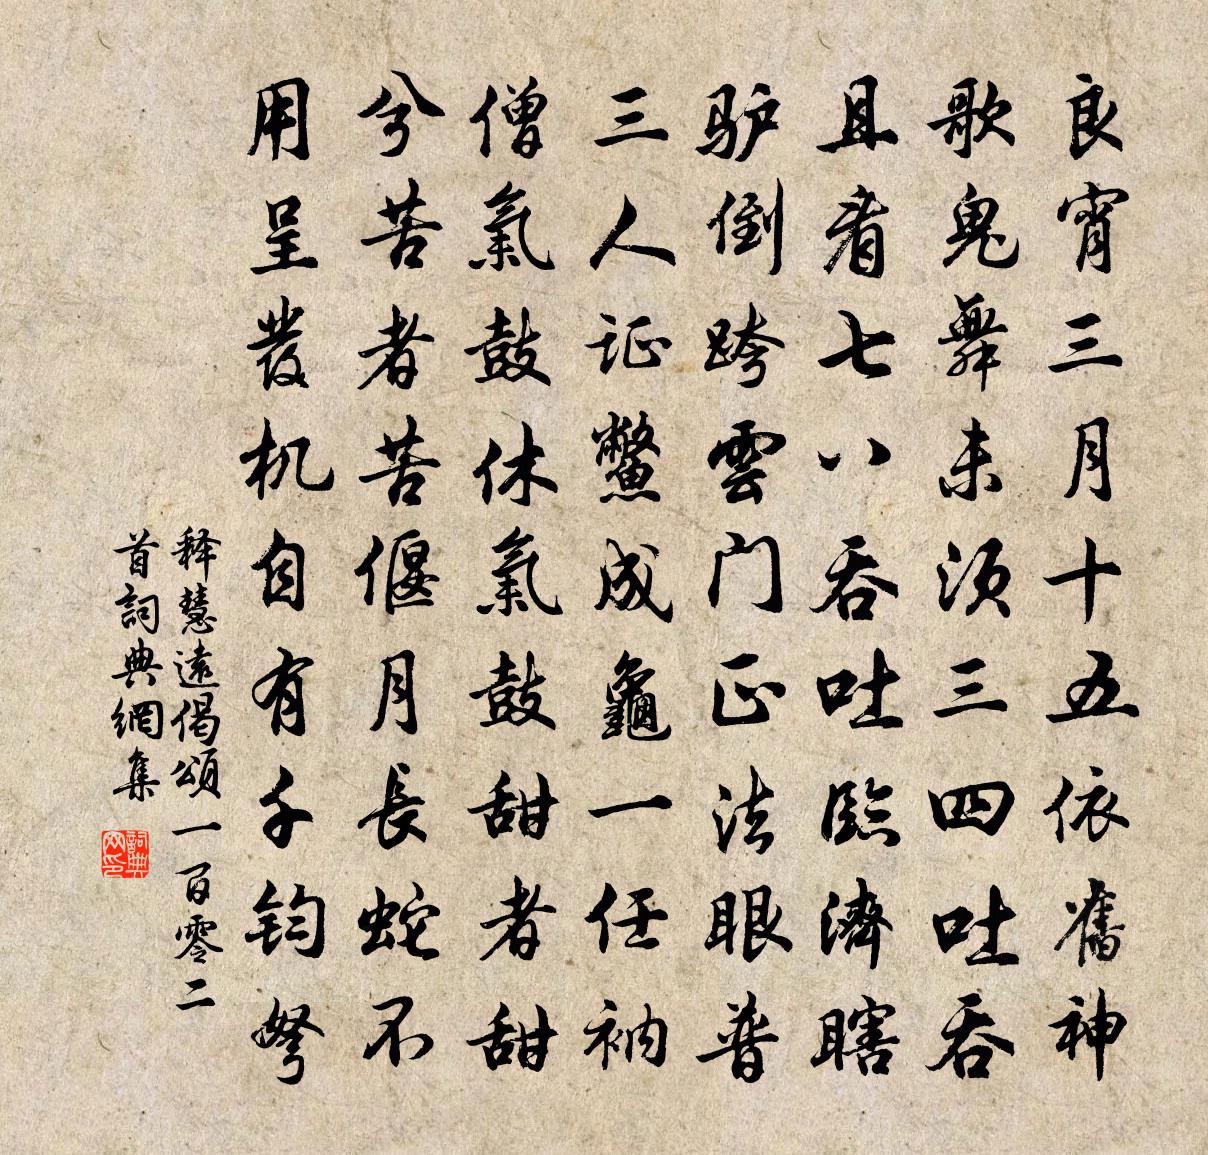 良宵三月十五依舊神
歌鬼舞未须三四吐吞
且看七八吞吐臨濟瞎
驴倒跨雲门正法眼普
三人证鱉成龜一任衲
僧氣鼓休氣鼓甜者甜
兮苦者苦偃月長蛇不
用呈发机自有千钧弩
释慧遠偈頌一百零二
首詞典網集
詞典
网印